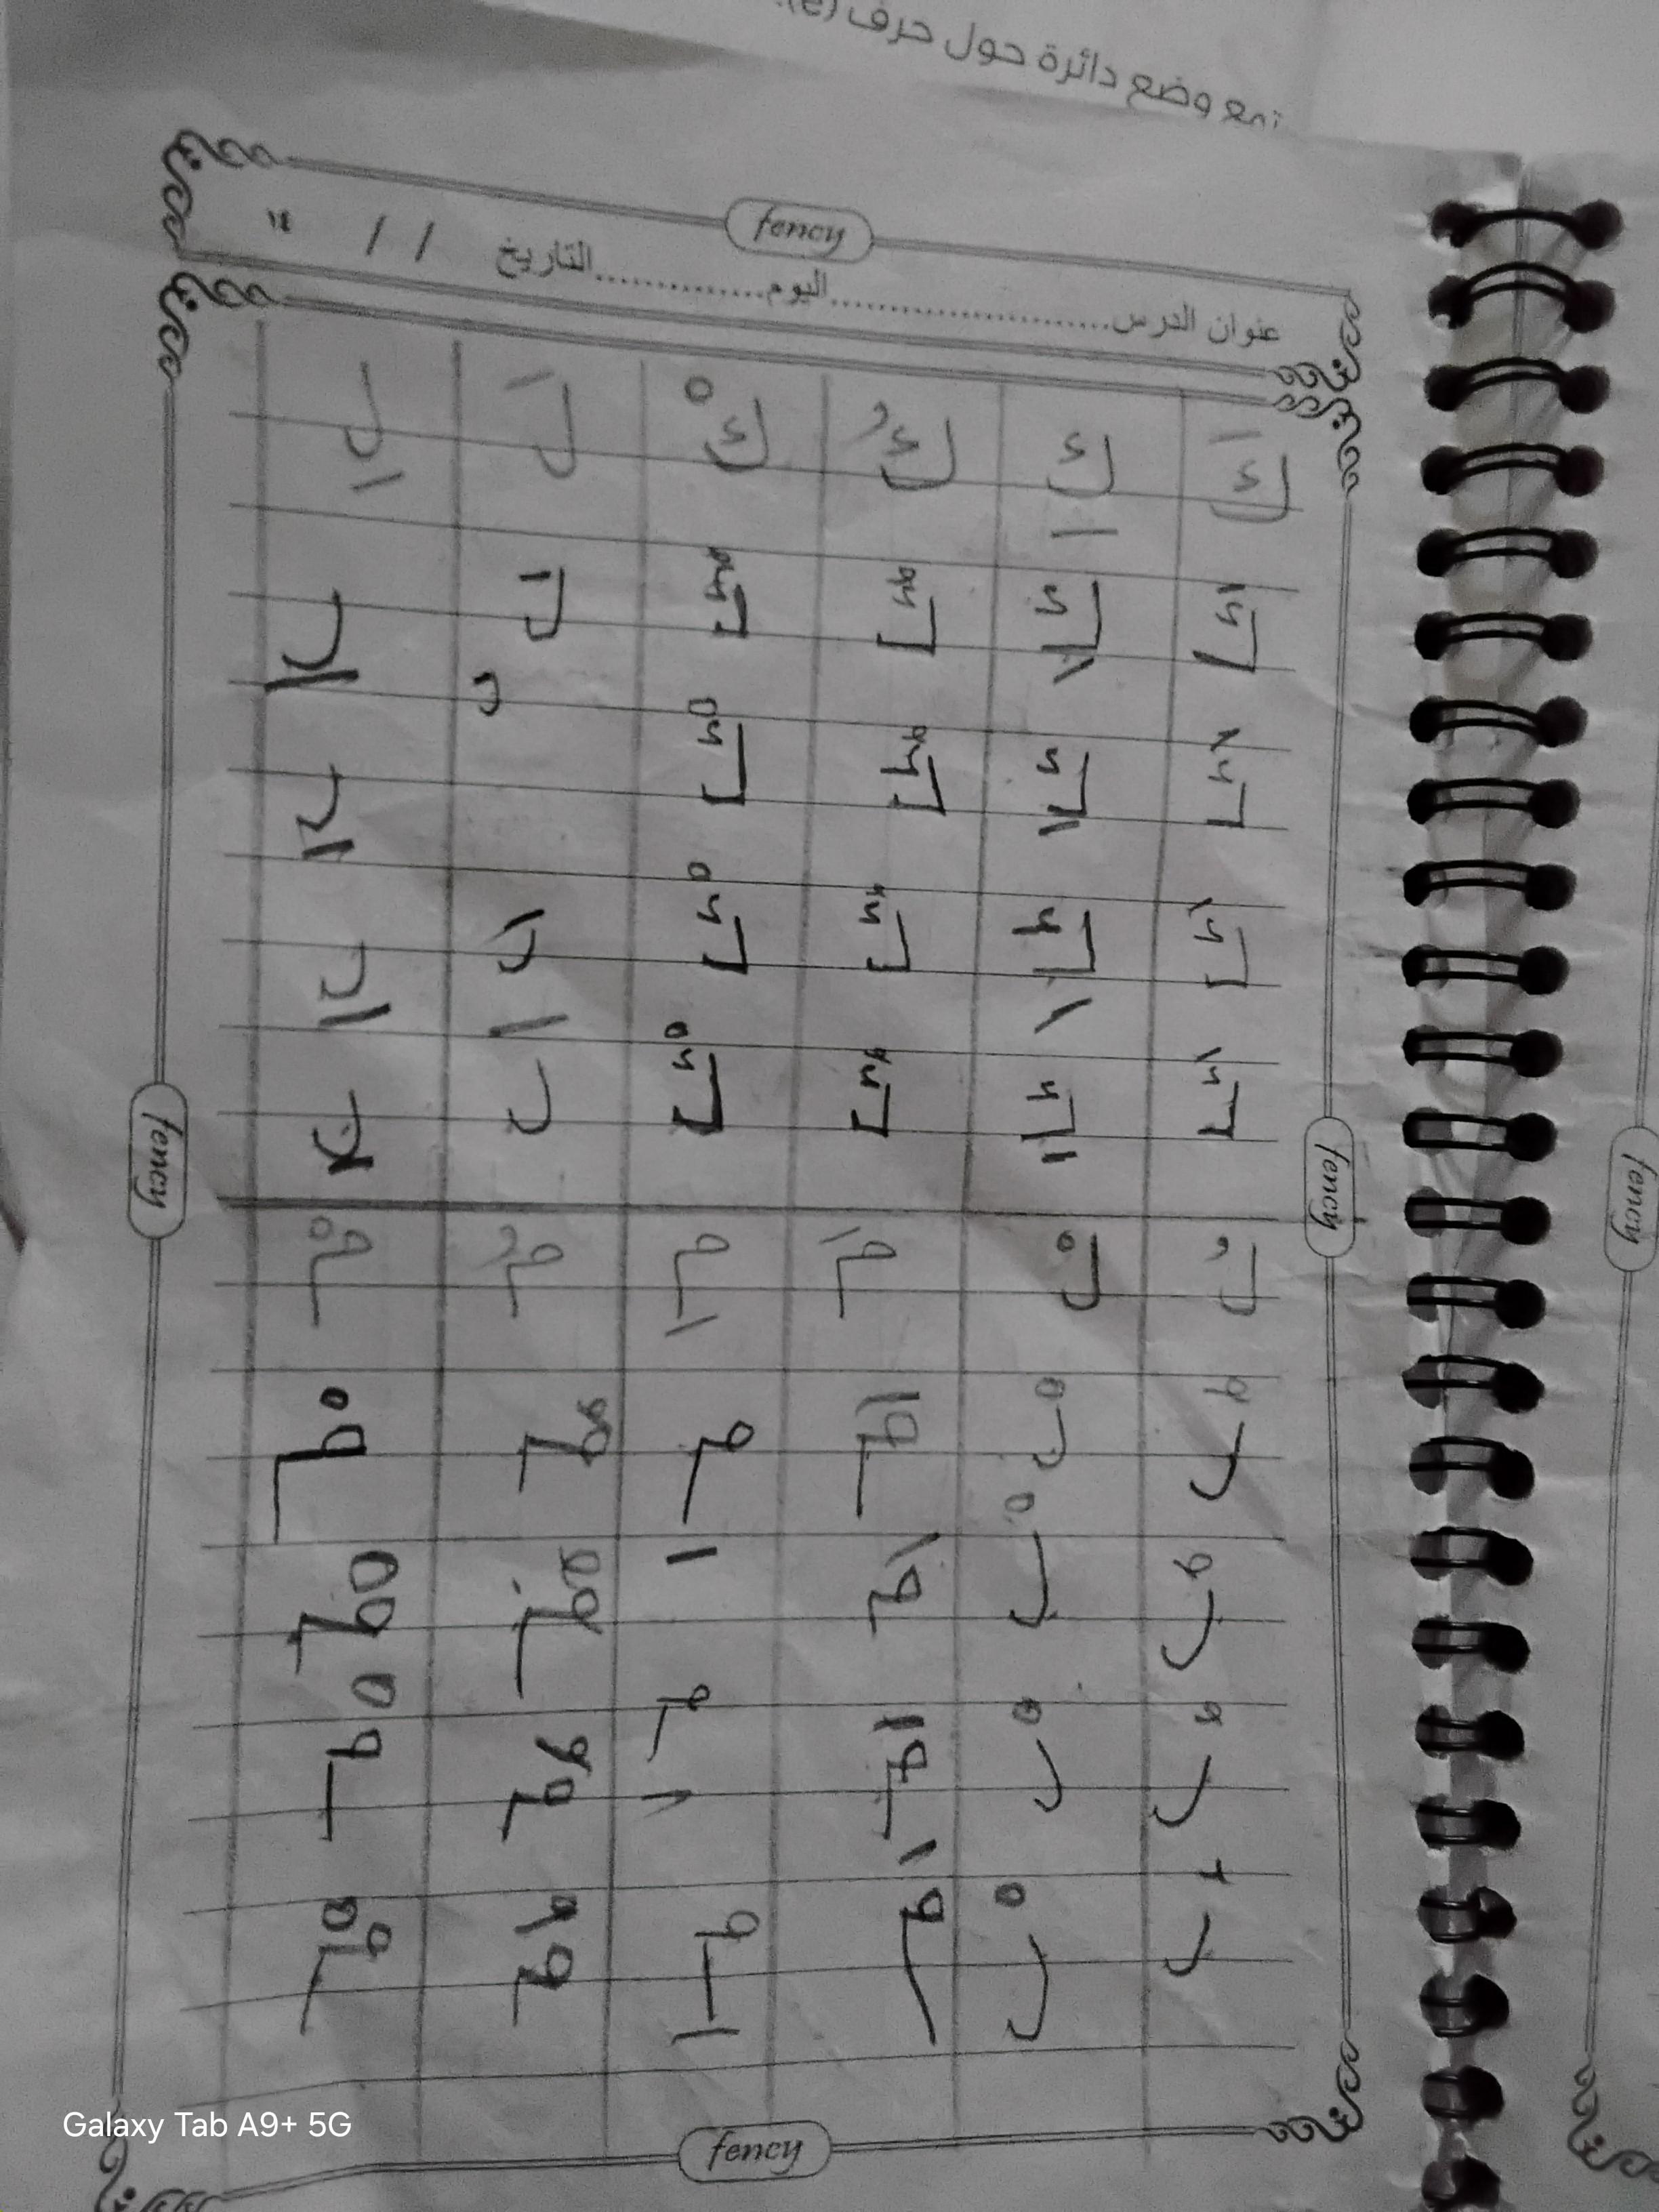 تمع وضع دائرة حول حرف (e).
fency
عنوان الدرس ........................ اليوم .............. التاريخ / /
كَ كِ كُ كْ لَ لِ
كَ كِ كُ كْ لَ لِ
كَ كِ كُ كْ ل لِ
كَ كِ كُ كْ لَ لِ
كَ كِ كُ كْ لَ لِ
fency
fency
fency
لُ لْ مَ مِ مُ مْ
لُ لْ مَ مِ مُ مْ
لُ لْ مَ مِ مُ مْ
لُ لْ مَ مِ مُ مْ
لُ لْ مَ مِ مُ مْ
fency
Galaxy Tab A9+ 5G